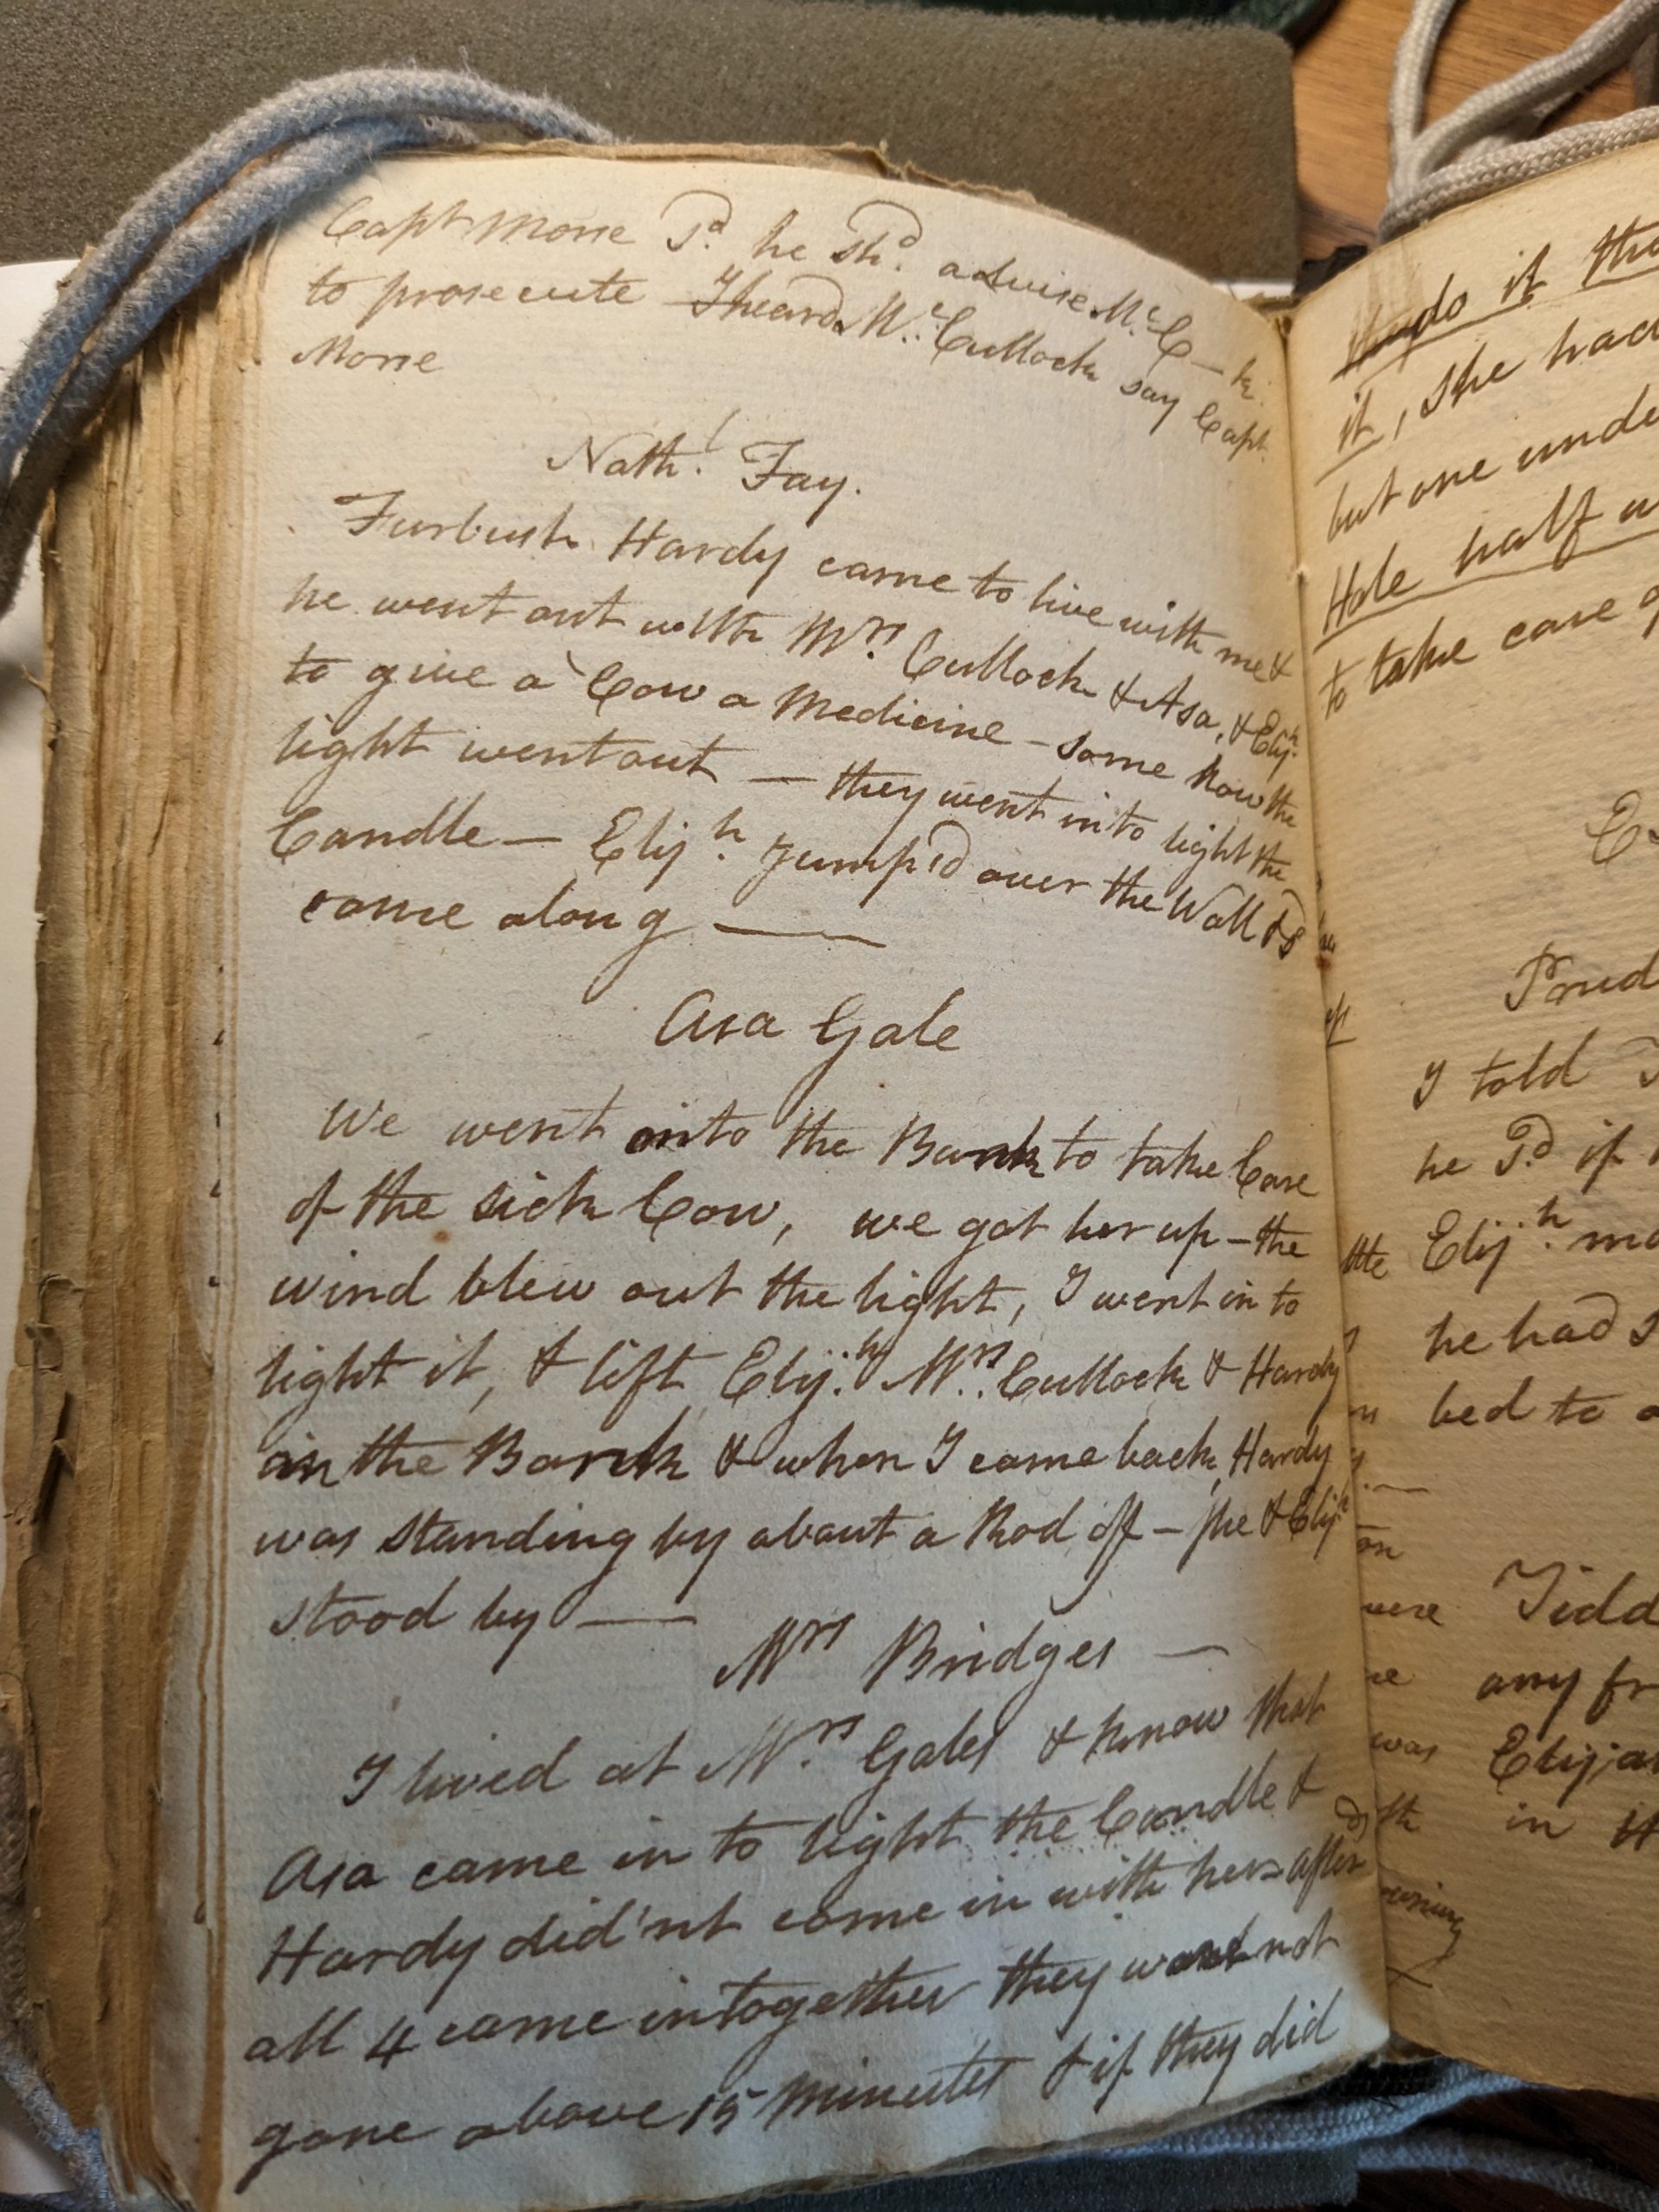 Capt Morse Sd. he shd. advise Mc. C—k
to prosecute I heard Mc. Cullock say Capt.
Morse
Nathl. Fay.
Furbush Hardy came to live with me &
he went out with Mrs. Cullock & Asa, & Elijh.
to give a Cow a Medicine – some how the
light went out — they went in to light the
Candle — Elijh. jump'd over the Wall &
came along —
Asa Gale
We went into the Barn to take Care
of the sick Cow, we got her up – the
wind blew out the light, I went in to
light it, & lift Elij.h Mrs. Cullock & Hardy
in the Barn & when I came back Hardy
was standing by about a Rod off – she & Elijh
stood by —
Mrs Bridges —
I lived at Mrs. Gales & know that
Asa came in to light the Candle &
Hardy did'nt come in with her – after
all 4 came in together they want not
gone above 15 minutes & if they did
do it the
it, she had
but one unde
Hole half
to take care
Prud
I told
he Sd if
Elijh. 
he had s
bed to
Tidd
any fr
Elija
in